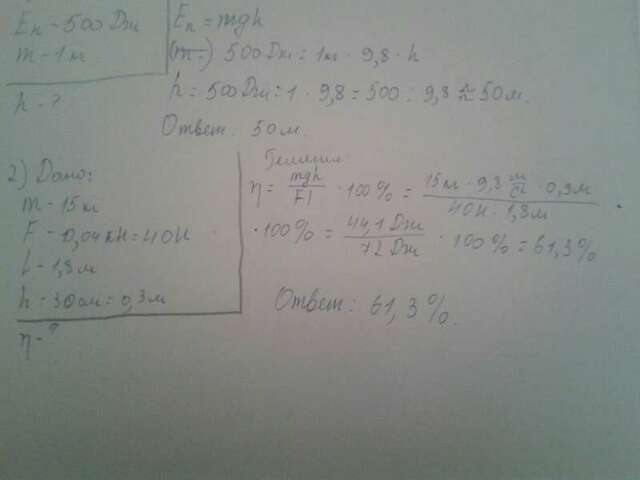 Eп - 500 Дж
m - 1 кг
h - ?
Eп = mgh
500 Дж = 1кг · 9,8 · h
h = 500 Дж : 1 · 9,8 = 500 : 9,8 ≈ 50 м.
Ответ: 50 м.
2) Дано:
m - 15 кг
F - 0,04 кН = 40Н
l - 1,8 м
h = 30 см = 0,3 м
η - ?
Решение
η = mgh / Fl · 100 % = 15 кг · 9,8 · 0,3 м / 40Н · 1,8 м ·
· 100 % = 44,1 Дж / 72 Дж · 100 % = 61,3 %
Ответ: 61,3 %.